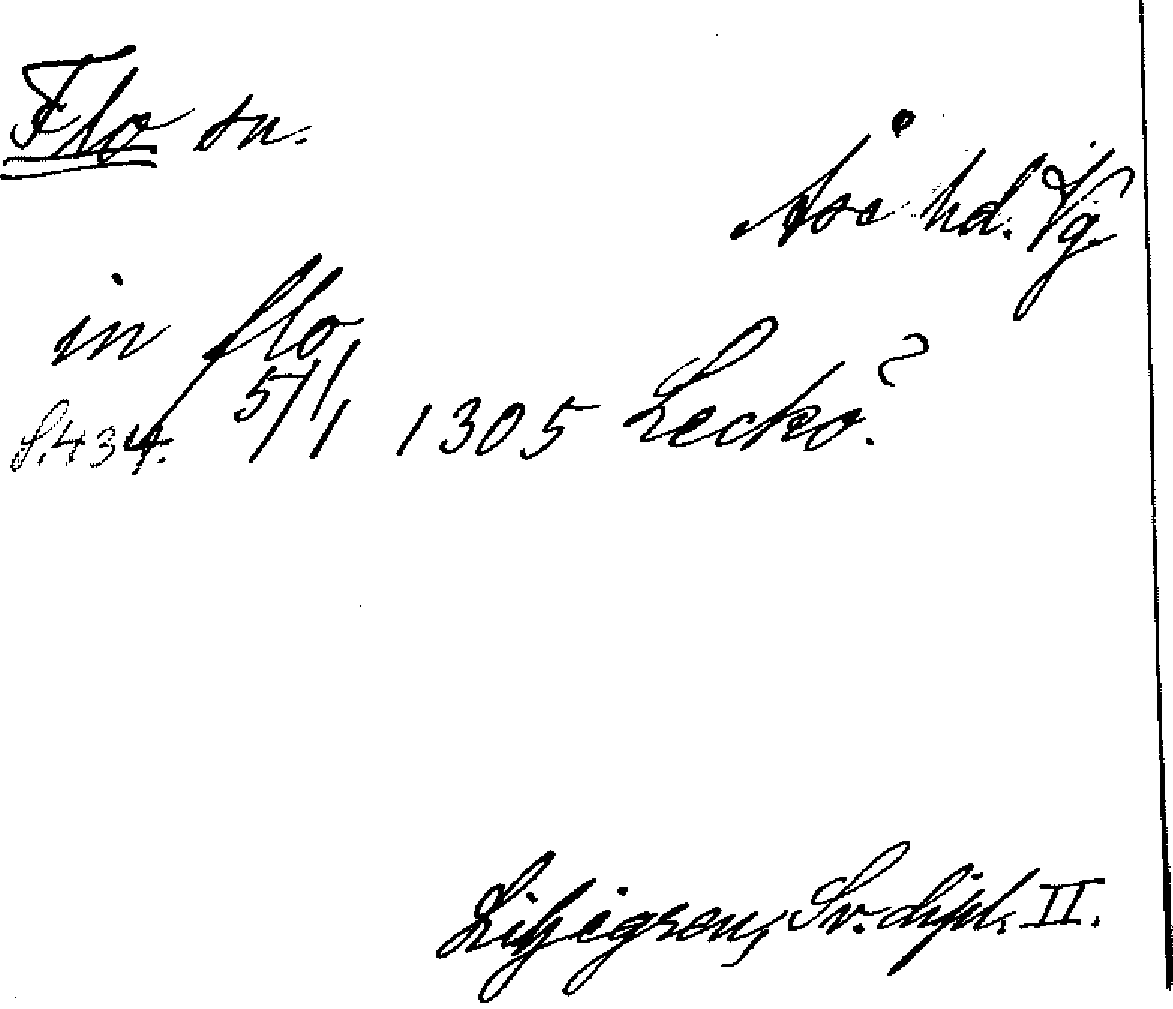 Flo sn.
Åse hd. Vg
in flo
S. 434. 5/1 1305 Leckö?
Liljegren, Sv. dipl. II.